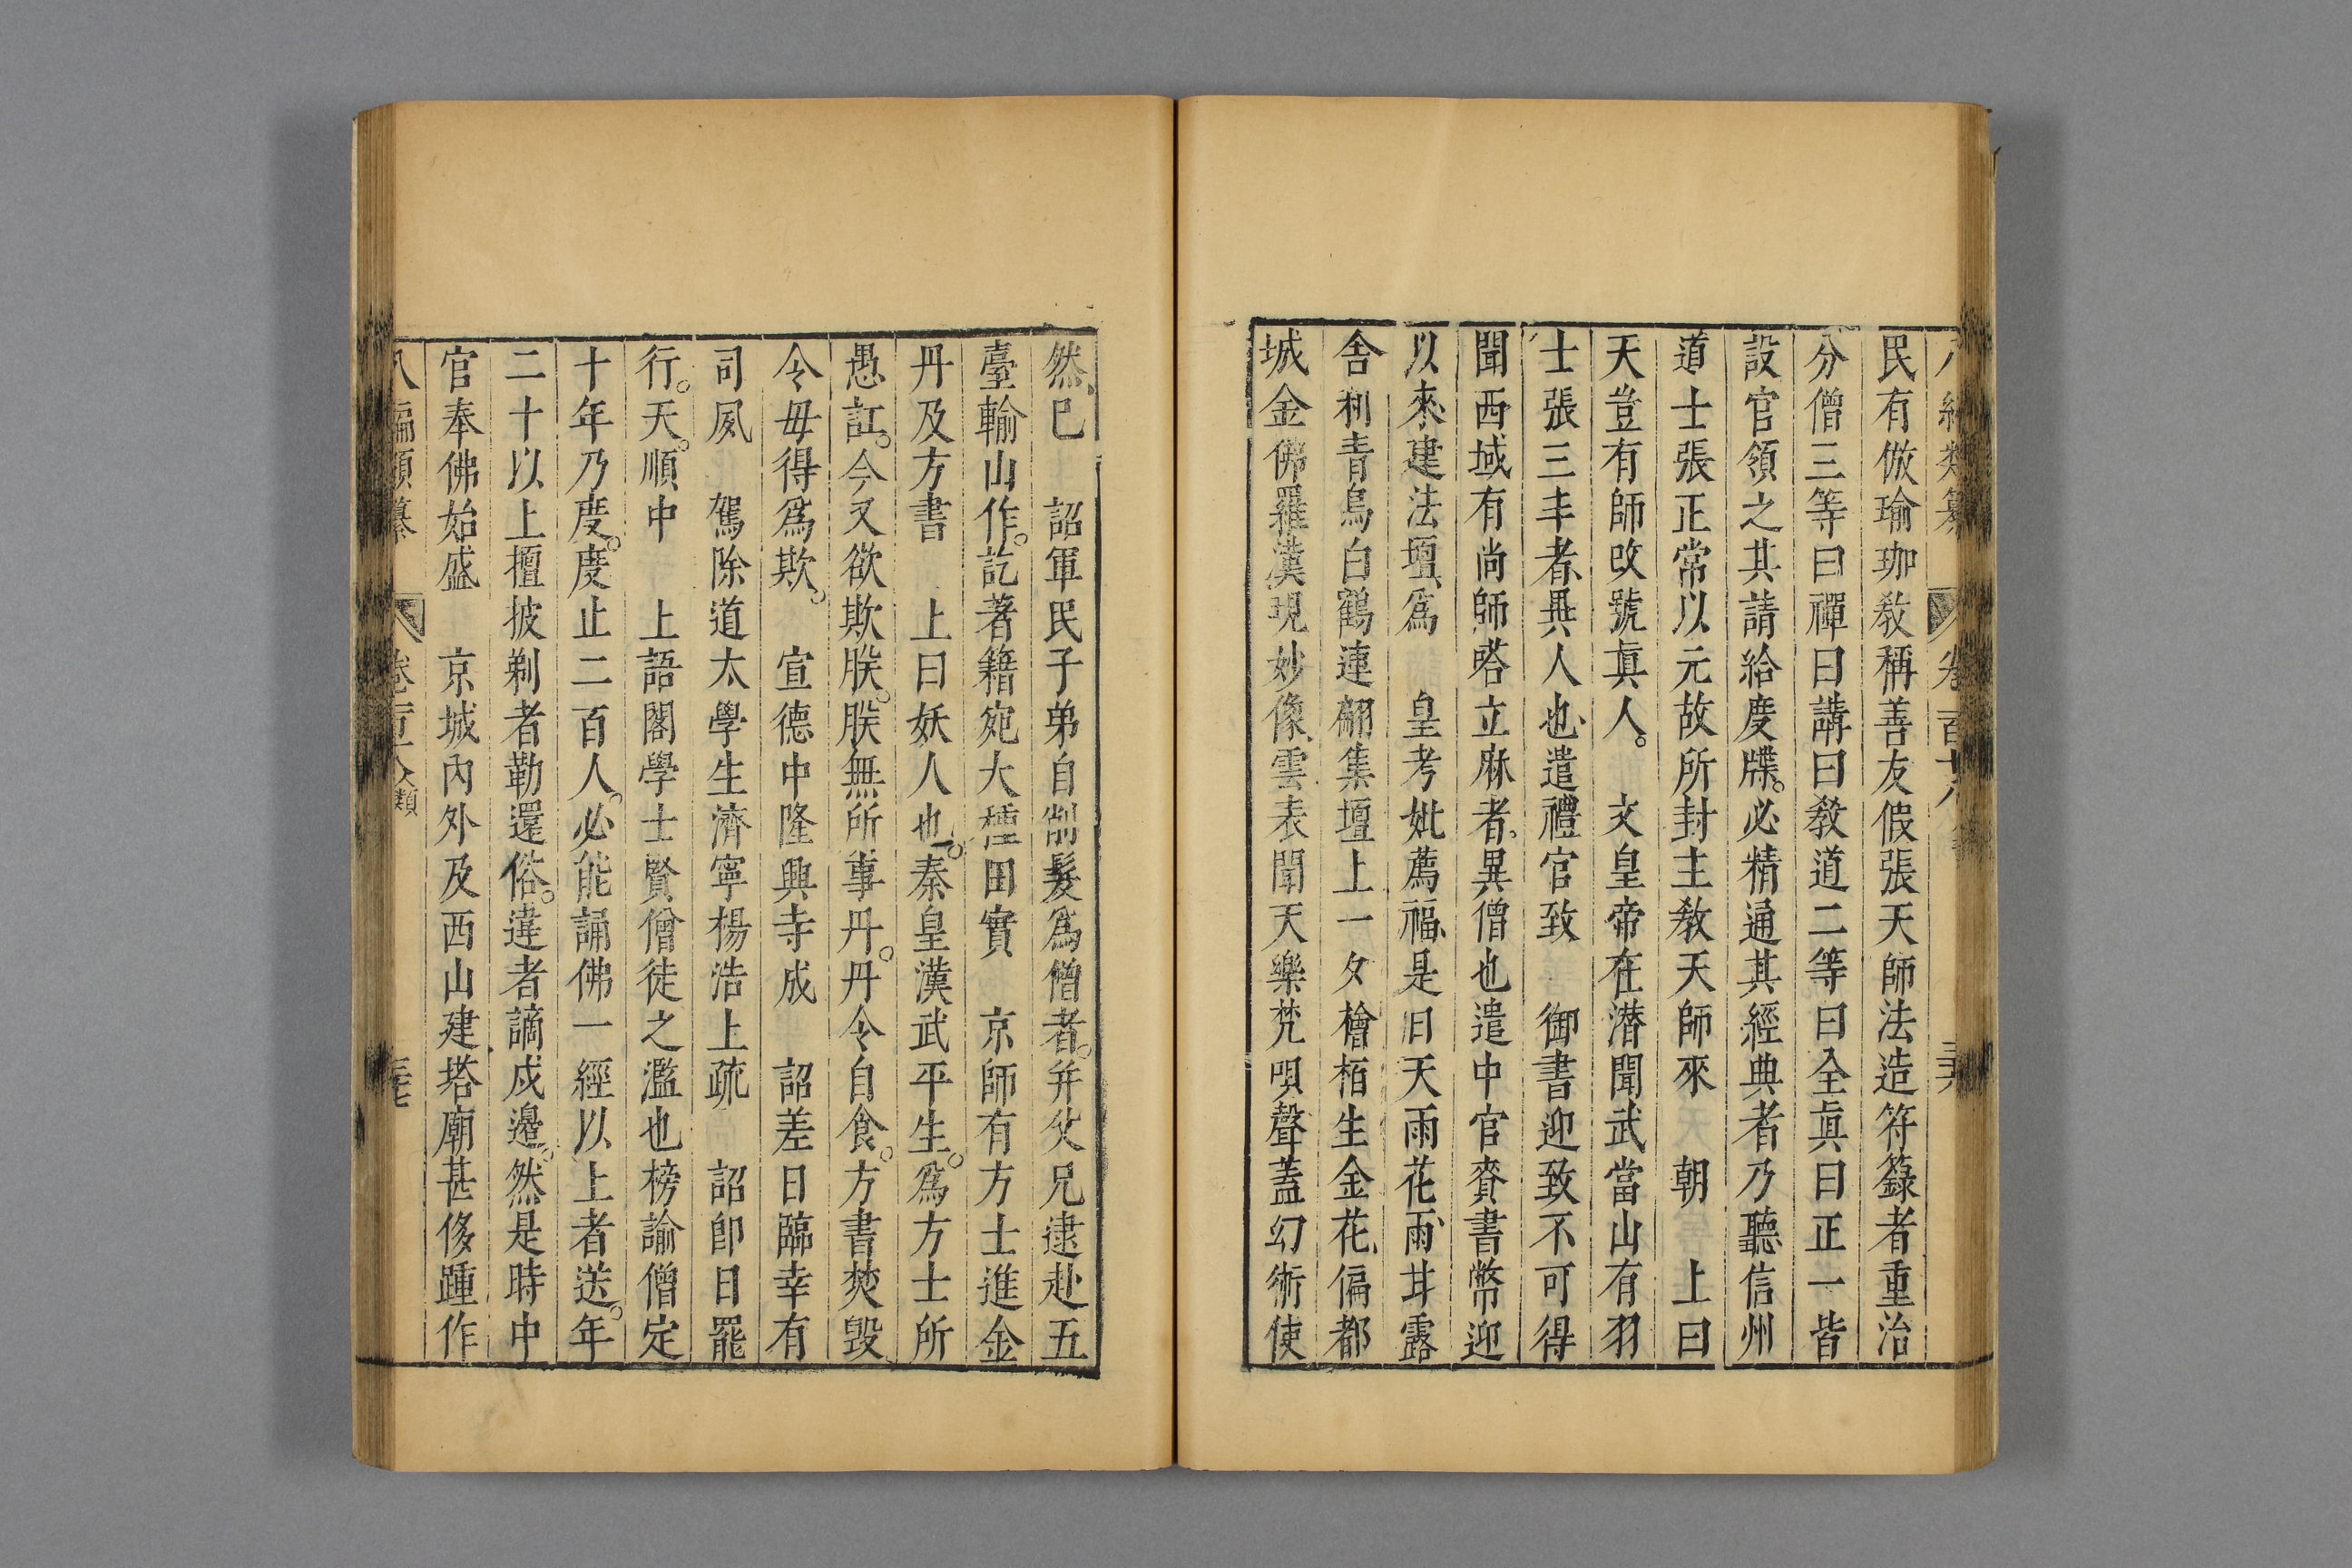 民有倣瑜珈敎稱善友假張天師法造符籙者重治
分僧三等曰禪曰講曰敎道二等曰全眞曰正一皆
設官領之其請給度牒必精通其經典者乃聽信州
道士張正常以元故所封主敎天師來 朝 上曰
天豈有師改號眞人 文皇帝在潜聞武當山有羽
士張三丰者異人也遣禮官致 御書迎致不可得
聞西域有尚師哈立麻者異僧也遣中官賫書幣迎
以來建法壇爲 皇考妣薦福是日天雨花雨甘露
舍利青鳥白鶴連翩集壇上一夕檜栢生金花徧都
城金佛羅漢現妙像雲表聞天樂梵唄聲蓋幻術使
然已 詔軍民子弟自削髮爲僧者并父兄逮赴五
臺輸山作訖著籍宛大種田實 京師有方士進金
丹及方書 上曰妖人也秦皇漢武平生爲方士所
愚訌今又欲欺朕朕無所事丹丹令自食方書焚毁
令毋得爲欺 宣德中隆興寺成 詔差日臨幸有
司夙 駕除道太學生濟寧楊浩上疏 詔卽日罷
行天順中 上語閣學士賢僧徒之濫也榜諭僧定
十年乃度度止二百人必能誦佛一經以上者送年
二十以上擅披剃者勒還俗違者謫戍邉然是時中
官奉佛始盛 京城內外及西山建塔廟甚侈踵作